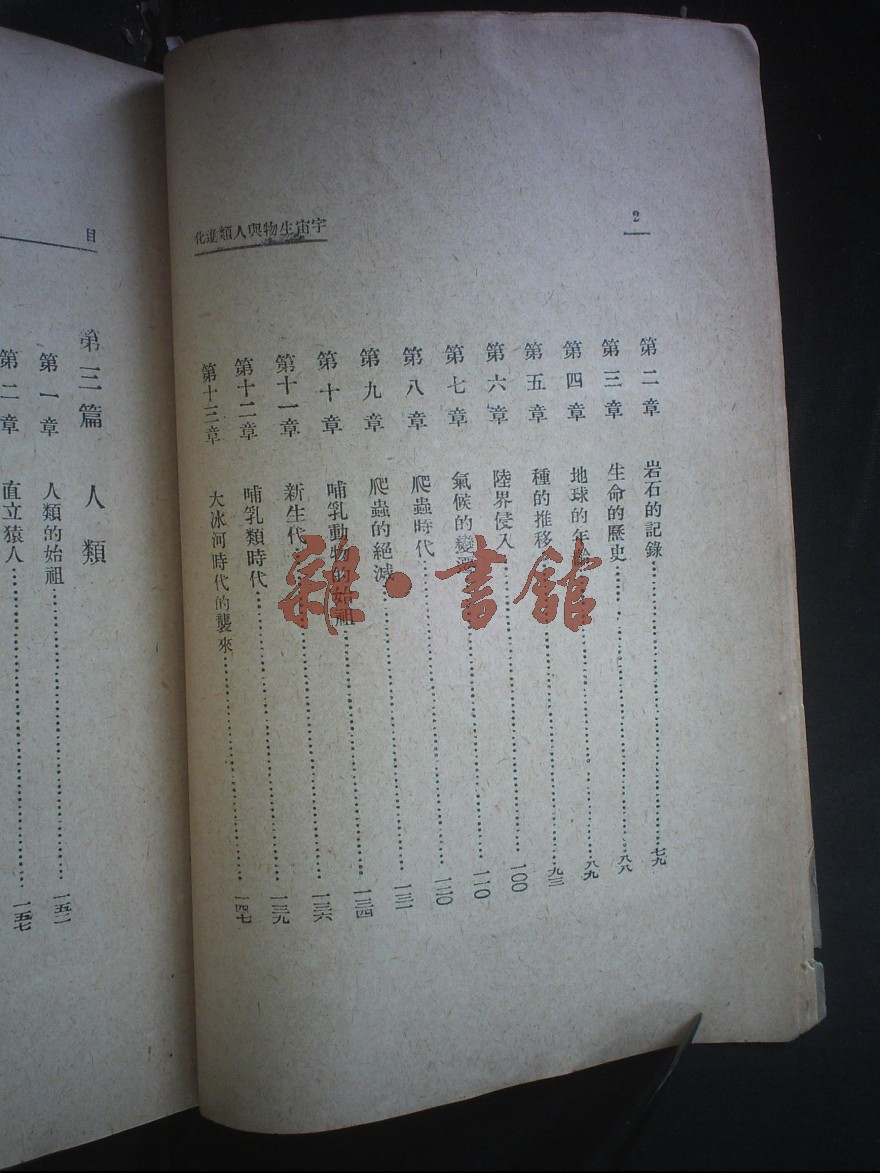 宇宙生物與人類進化
2
第二章 岩石的記錄 七九
第三章 生命的歷史 八八
第四章 地球的年齡 八九
第五章 種的推移 九三
第六章 陸界侵入 一〇〇
第七章 氣候的變 一一〇
第八章 爬蟲時代 一二〇
第九章 爬蟲的絕滅 一三一
第十章 哺乳動物的始祖 一三四
第十一章 新生代 一三六
第十二章 哺乳類時代 一三九
第十三章 大冰河時代的襲來 一四七
目
第三篇 人類
第一章 人類的始祖 一五二
第二章 直立猿人 一五七
雜·書館